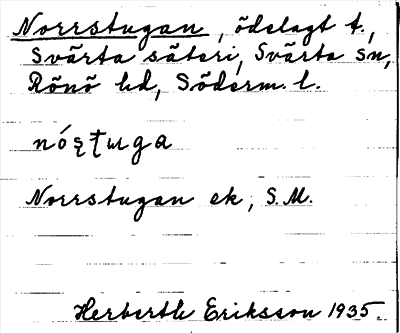 Norrstugan, ödelagt t.,
Svärta säteri, Svärta sn,
Rönö hd, Söderm. l.
nóʂʈuga
Norrstugan ek, S.M.
Herberth Eriksson 1935.